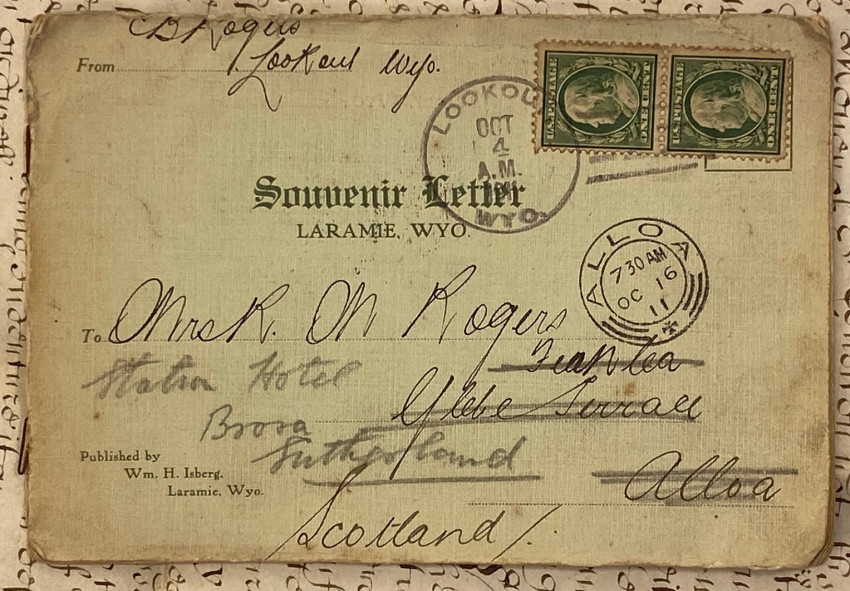 From B Rogers
Lookout Wyo.
U.S. POSTAGE
ONE CENT
U.S. POSTAGE
ONE CENT
LOOKOUT
OCT
4
A.M.
WYO.
Souvenir Letter
LARAMIE, WYO.
ALLOA
7 30 AM
OC 16
11
To Mrs R. M Rogers
Station Hotel
Glebe Terrace
Brora
Sutherland
Published by
Wm. H. Isberg,
Laramie, Wyo.
Alloa
Scotland